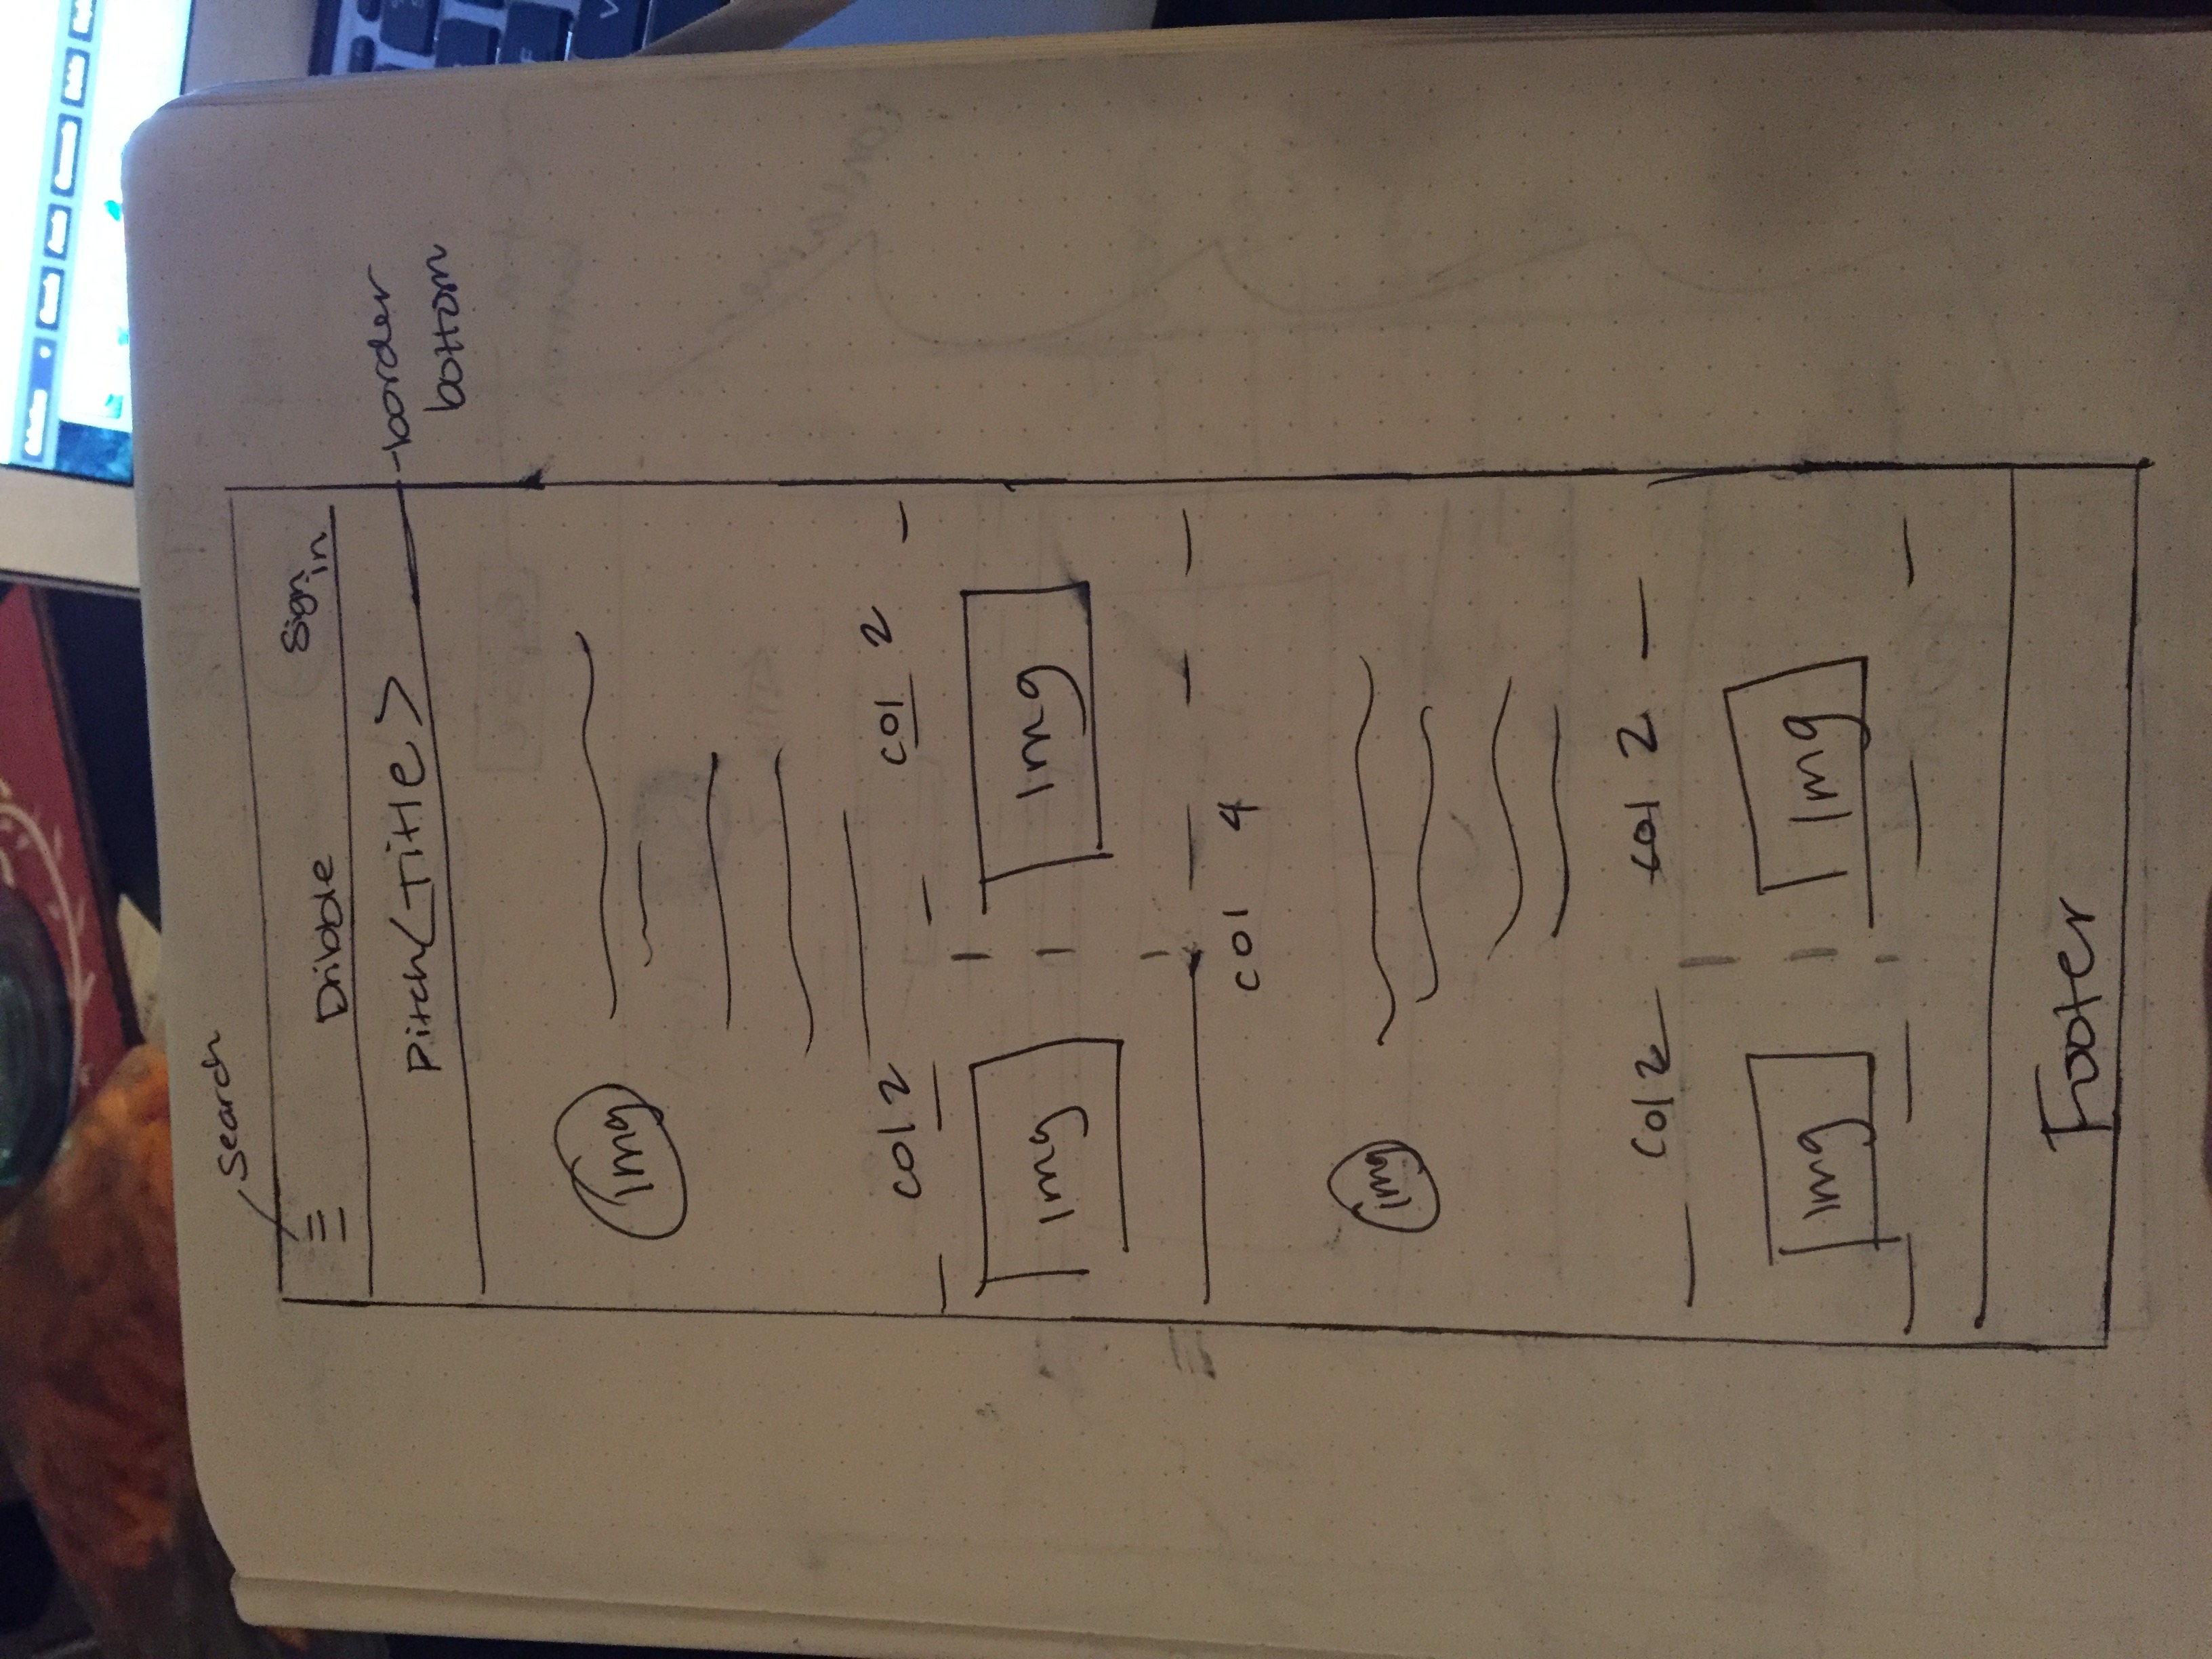 search
Dribble
Sign
in
Pitch <Title>
border
bottom
img
col 2 col 2
img img
col 4
img
col 2 col 2
img img
Footer